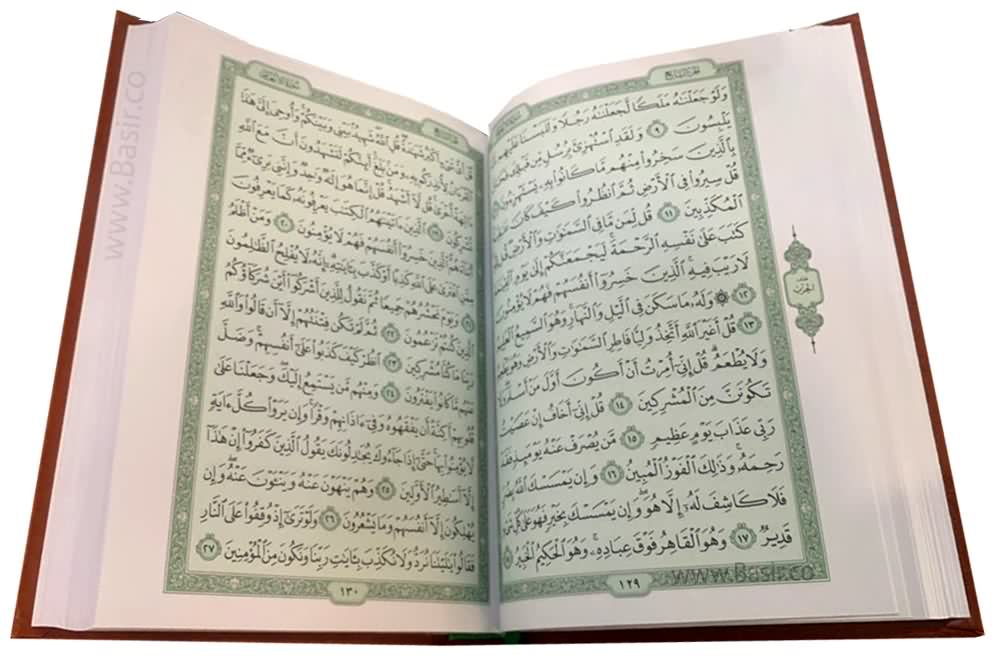 الجزء السابع
وَلَوْ جَعَلْنَٰهُ مَلَكًا لَّجَعَلْنَٰهُ رَجُلًا وَلَلَبَسْنَا عَلَيْهِم
يَلْبِسُونَ ٩ وَلَقَدِ ٱسْتُهْزِئَ بِرُسُلٍ مِّن قَبْلِكَ
بِٱلَّذِينَ سَخِرُوا۟ مِنْهُم مَّا كَانُوا۟ بِهِۦ يَسْتَهْزِءُونَ
قُلْ سِيرُوا۟ فِى ٱلْأَرْضِ ثُمَّ ٱنظُرُوا۟ كَيْفَ كَانَ
ٱلْمُكَذِّبِينَ ١١ قُل لِّمَن مَّا فِى ٱلسَّمَٰوَٰتِ وَٱلْأَرْضِ قُل
كَتَبَ عَلَىٰ نَفْسِهِ ٱلرَّحْمَةَ ۚ لَيَجْمَعَنَّكُمْ إِلَىٰ يَوْمِ
لَا رَيْبَ فِيهِ ۚ ٱلَّذِينَ خَسِرُوٓا۟ أَنفُسَهُمْ فَهُمْ لَا يُؤْمِنُونَ
١٢ ۞ وَلَهُۥ مَا سَكَنَ فِى ٱلَّيْلِ وَٱلنَّهَارِ ۚ وَهُوَ ٱلسَّمِيعُ ٱلْعَلِيمُ
١٣ قُلْ أَغَيْرَ ٱللَّهِ أَتَّخِذُ وَلِيًّا فَاطِرِ ٱلسَّمَٰوَٰتِ وَٱلْأَرْضِ وَهُوَ يُطْعِمُ
وَلَا يُطْعَمُ ۗ قُلْ إِنِّىٓ أُمِرْتُ أَنْ أَكُونَ أَوَّلَ مَنْ أَسْلَمَ ۖ وَلَا
تَكُونَنَّ مِنَ ٱلْمُشْرِكِينَ ١٤ قُلْ إِنِّىٓ أَخَافُ إِنْ عَصَيْتُ
رَبِّى عَذَابَ يَوْمٍ عَظِيمٍ ١٥ مَّن يُصْرَفْ عَنْهُ يَوْمَئِذٍ فَقَدْ
رَحِمَهُۥ ۚ وَذَٰلِكَ ٱلْفَوْزُ ٱلْمُبِينُ ١٦ وَإِن يَمْسَسْكَ ٱللَّهُ بِضُرٍّ
فَلَا كَاشِفَ لَهُۥٓ إِلَّا هُوَ ۖ وَإِن يَمْسَسْكَ بِخَيْرٍ فَهُوَ عَلَىٰ كُلِّ شَىْءٍ
قَدِيرٌ ١٧ وَهُوَ ٱلْقَاهِرُ فَوْقَ عِبَادِهِۦ ۚ وَهُوَ ٱلْحَكِيمُ ٱلْخَبِيرُ
١٢٩
الحزب
قُلْ أَىُّ شَىْءٍ أَكْبَرُ شَهَٰدَةً ۖ قُلِ ٱللَّهُ ۖ شَهِيدٌۢ بَيْنِى وَبَيْنَكُمْ ۚ وَأُوحِىَ إِلَىَّ هَٰذَا
ٱلْقُرْءَانُ لِأُنذِرَكُم بِهِۦ وَمَنۢ بَلَغَ ۚ أَئِنَّكُمْ لَتَشْهَدُونَ أَنَّ مَعَ ٱللَّهِ
ءَالِهَةً أُخْرَىٰ ۚ قُل لَّآ أَشْهَدُ ۚ قُلْ إِنَّمَا هُوَ إِلَٰهٌ وَٰحِدٌ وَإِنَّنِى بَرِىٓءٌ مِّمَّا
تُشْرِكُونَ ١٩ ٱلَّذِينَ ءَاتَيْنَٰهُمُ ٱلْكِتَٰبَ يَعْرِفُونَهُۥ كَمَا يَعْرِفُونَ
أَبْنَآءَهُمُ ۘ ٱلَّذِينَ خَسِرُوٓا۟ أَنفُسَهُمْ فَهُمْ لَا يُؤْمِنُونَ ٢٠ وَمَنْ أَظْلَمُ
مِمَّنِ ٱفْتَرَىٰ عَلَى ٱللَّهِ كَذِبًا أَوْ كَذَّبَ بِـَٔايَٰتِهِۦٓ ۗ إِنَّهُۥ لَا يُفْلِحُ ٱلظَّٰلِمُونَ
٢١ وَيَوْمَ نَحْشُرُهُمْ جَمِيعًا ثُمَّ نَقُولُ لِلَّذِينَ أَشْرَكُوٓا۟ أَيْنَ شُرَكَآؤُكُمُ
ٱلَّذِينَ كُنتُمْ تَزْعُمُونَ ٢٢ ثُمَّ لَمْ تَكُن فِتْنَتُهُمْ إِلَّآ أَن قَالُوا۟ وَٱللَّهِ
رَبِّنَا مَا كُنَّا مُشْرِكِينَ ٢٣ ٱنظُرْ كَيْفَ كَذَبُوا۟ عَلَىٰٓ أَنفُسِهِمْ ۚ وَضَلَّ
عَنْهُم مَّا كَانُوا۟ يَفْتَرُونَ ٢٤ وَمِنْهُم مَّن يَسْتَمِعُ إِلَيْكَ ۖ وَجَعَلْنَا عَلَىٰ
قُلُوبِهِمْ أَكِنَّةً أَن يَفْقَهُوهُ وَفِىٓ ءَاذَانِهِمْ وَقْرًا ۚ وَإِن يَرَوْا۟ كُلَّ ءَايَةٍ
لَّا يُؤْمِنُوا۟ بِهَا ۚ حَتَّىٰٓ إِذَا جَآءُوكَ يُجَٰدِلُونَكَ يَقُولُ ٱلَّذِينَ كَفَرُوٓا۟ إِنْ هَٰذَآ
إِلَّآ أَسَٰطِيرُ ٱلْأَوَّلِينَ ٢٥ وَهُمْ يَنْهَوْنَ عَنْهُ وَيَنْـَٔوْنَ عَنْهُ ۖ وَإِن
يُهْلِكُونَ إِلَّآ أَنفُسَهُمْ وَمَا يَشْعُرُونَ ٢٦ وَلَوْ تَرَىٰٓ إِذْ وُقِفُوا۟ عَلَى ٱلنَّارِ
فَقَالُوا۟ يَٰلَيْتَنَا نُرَدُّ وَلَا نُكَذِّبَ بِـَٔايَٰتِ رَبِّنَا وَنَكُونَ مِنَ ٱلْمُؤْمِنِينَ ٢٧
١٣٠
www.Basir.co
www.Basir.co